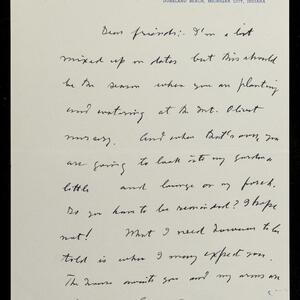 DUNELAND BEACH, MICHIGAN CITY, INDIANA
Dear friends:- I'm a bit
mixed up on dates but this should
be the season when you are planting
and watering at the Mt. Olivet
nursery. And when that's over, you
are going to look into my garden a
little and lounge on my porch.
Do you have to be reminded? I hope
not! What I need however to be
told is when I may expect you.
The house awaits you and my arms are